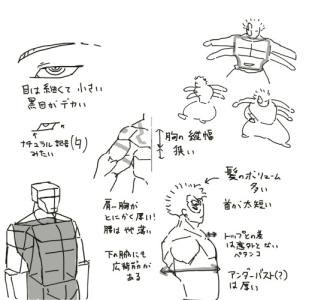 目は細くて小さい
黒目がデカい
ナチュラル記号(♮)
みたい
胸の縦幅
狭い
肩〜胸が
とにかく厚い!
腰はやや薄い
下の脇にも
広背筋が
ある
髪のボリューム
多い
首が太短い
トップとの差
は意外とない
ペタンコ
アンダーバスト(?)
は厚い